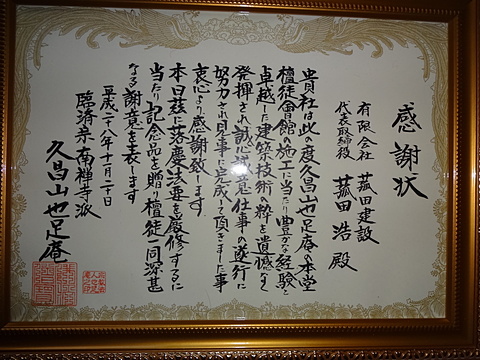 感謝状
有限会社 菰田建設
代表取締役 菰田 浩 殿
貴社は此の度久昌山也足庵の本堂
檀徒會館の施工に当たり豊かな経験と
卓越した建築技術の粋を遺憾なく
発揮され誠心誠意仕事の遂行に
努力され見事に完成して頂きました事
衷心より感謝致します
本日茲に落慶法要を厳修するに
当たり記念品を贈り檀徒一同深甚
なる謝意を表します
平成二十八年十月二十日
臨済宗南禅寺派
久昌山也足庵